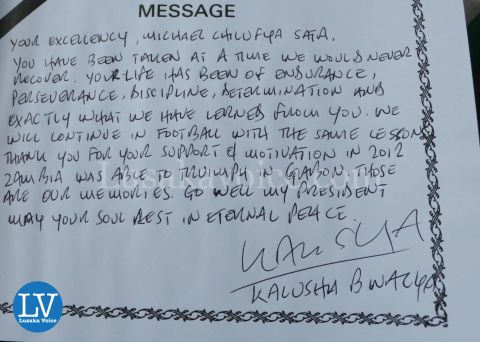 MESSAGE
YOUR EXCELLENCY, MICHAEL CHILUFYA SATA,
YOU HAVE BEEN TAKEN AT A TIME WE WOULD NEVER
RECOVER. YOUR LIFE HAS BEEN OF ENDURANCE,
PERSEVERANCE, DISCIPLINE, DETERMINATION AND
EXACTLY WHAT WE HAVE LEARNED FROM YOU. WE
WILL CONTINUE IN FOOTBALL WITH THE SAME LESSON
THANK YOU FOR YOUR SUPPORT & MOTIVATION IN 2012
ZAMBIA WAS ABLE TO TRIUMPH IN GABON THOSE
ARE OUR MEMORIES. GO WELL MY PRESIDENT
MAY YOUR SOUL REST IN ETERNAL PEACE.
KALUSHA
KALUSHA BWALYA
Lusakavoice.com
LV
Lusaka Voice